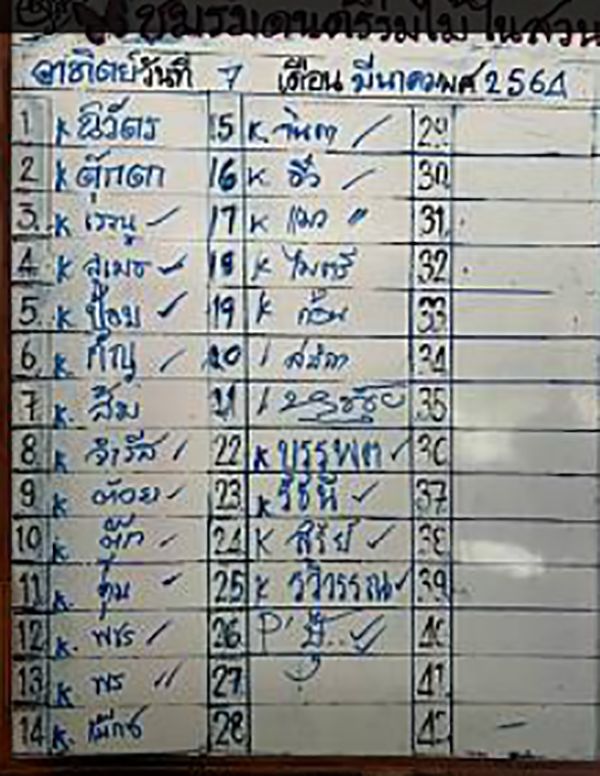 ชมรมดนตรีร่มไม้ในสวน
อาทิตย์วันที่ 7 เดือน มีนาคม พศ 2564
1 K นิวัตร 15 K. จินดา 29
2 K ตุ๊กตา 16 K 30
3. K เรณู 17 K แมว 〃 31
4. K สุเมธ 18 K ไมตรี 32
5. K ป้อม 19 K ก้อน 33
6. K กัญ 20 34
7 K. ส้ม 21 35
8 K จำรัส 22 K บรรพต 36
9 K ต้อย 23 K รัชนี 37
10 K. ตุ๊ก 24 K สุรีย์ 38
11 K. ตุ่ม 25 K รวิวรรณ 39
12 K. พชร 26 P' 40
13 K พร 〃 27 41
14 K. 28 42